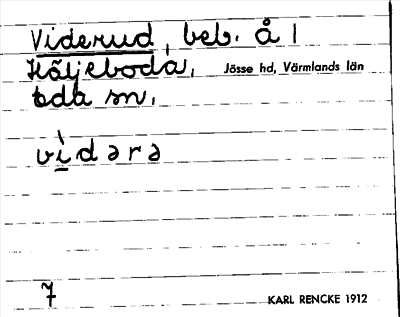 Viderud, beb. å 1
Häljeboda, Jösse hd, Värmlands län
Eda sn,
vìdərə
7
KARL RENCKE 1912